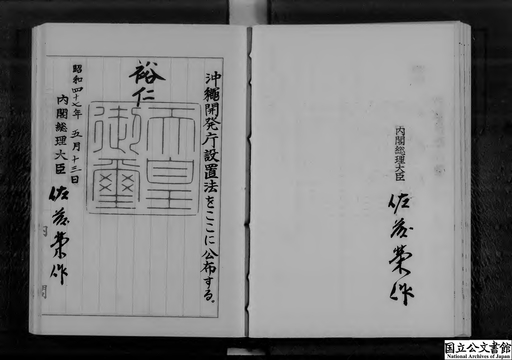 沖縄開発庁設置法をここに公布する。
裕仁
天皇御璽
昭和四十七年五月十三日
内閣総理大臣 佐藤榮作
内閣
内閣総理大臣 佐藤榮作
国立公文書館
National Archives of Japan